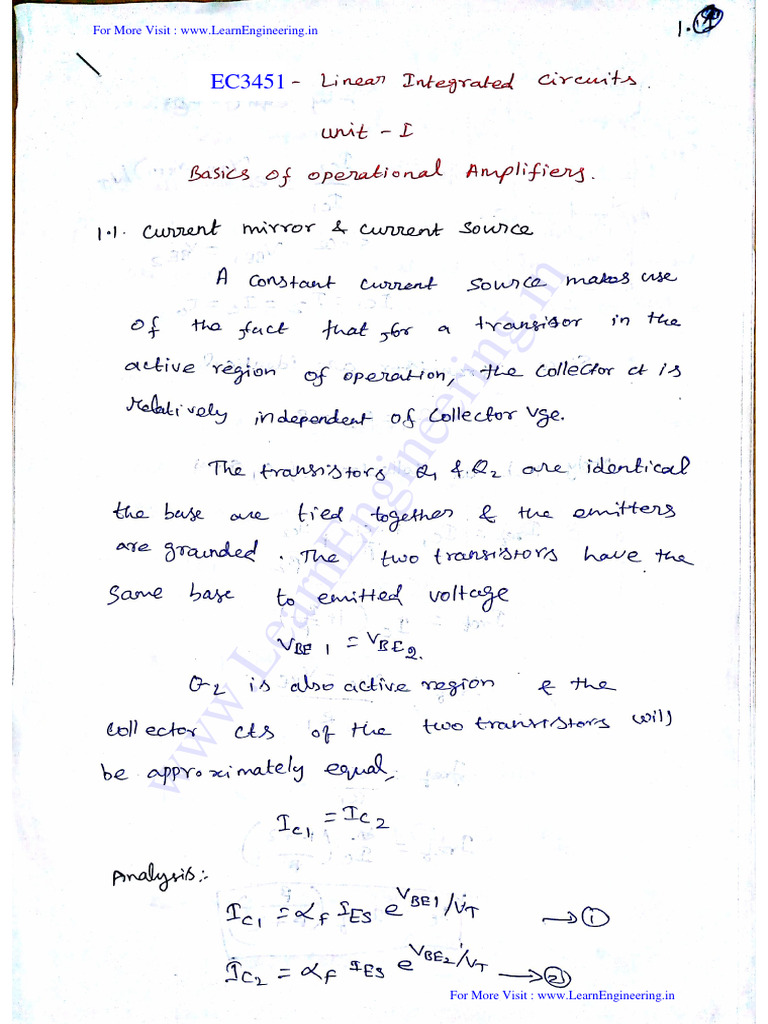 For More Visit : www.LearnEngineering.in
EC3451 - Linear Integrated Circuits.
Unit - I
Basics of operational Amplifiers.
1.1. Current mirror & current source
A constant current source makes use
of the fact that for a transistor in the
active region of operation, the collector ct is
relatively independent of collector vge.
The transistors Q1 & Q2 are identical
the base are tied together & the emitters
are grounded. The two transistors have the
same base to emitted voltage
VBE1 = VBE2.
Q2 is also active region & the
collector cts of the two transistors will
be approximately equal,
IC1 = IC2
Analysis:-
IC1 = αF IES e^VBE1/VT → ①
IC2 = αF IES e^VBE2/VT → ②
www.LearnEngineering.in
For More Visit : www.LearnEngineering.in